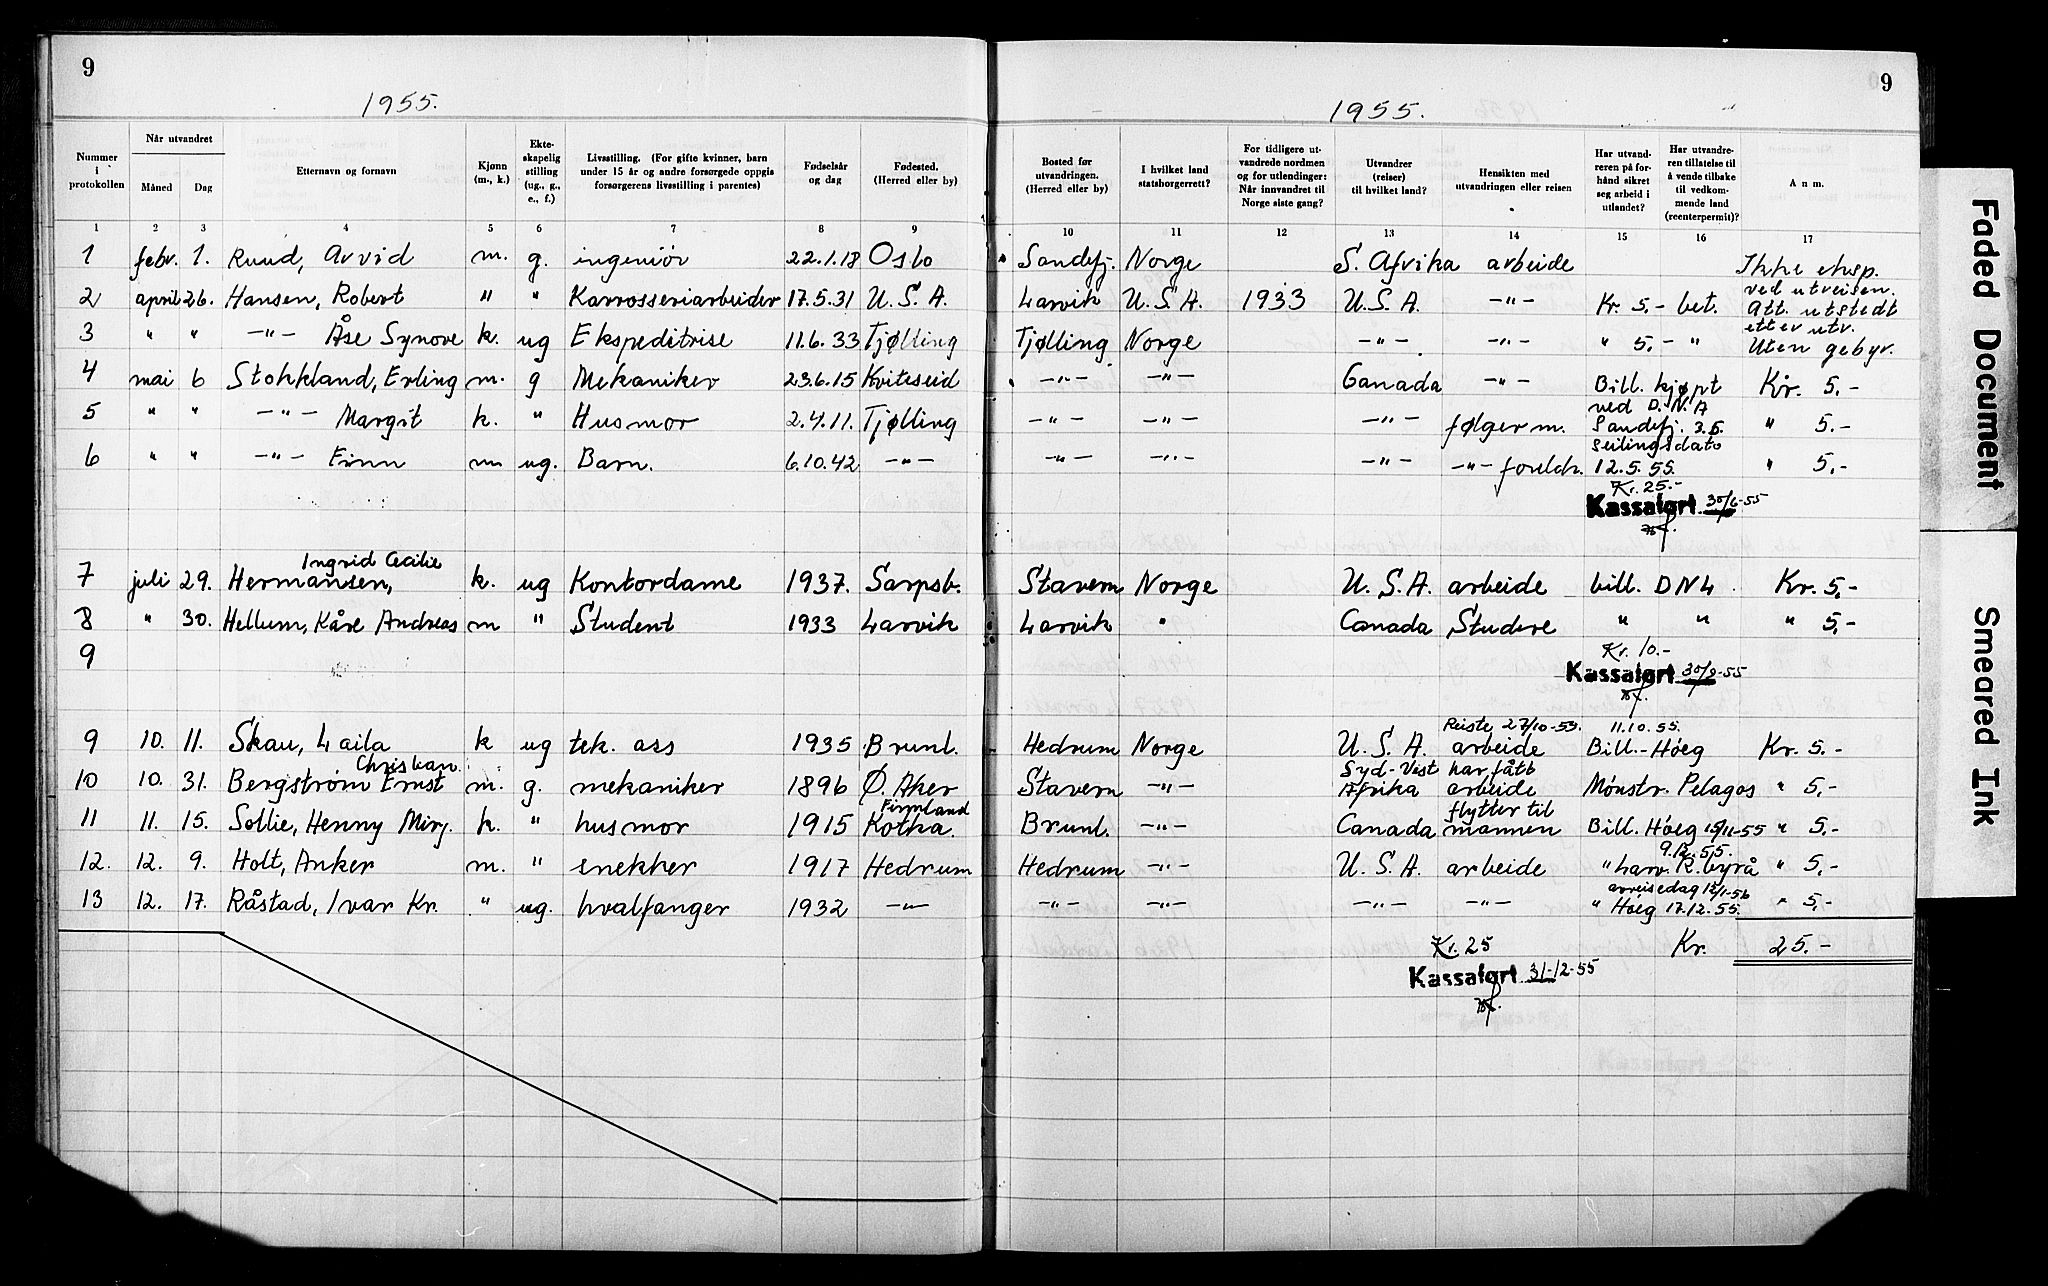 9
1955.
Nummer i protokollen
Når utvandret
Måned
Dag
Etternavn og fornavn
Kjønn (m., k.)
Ekteskapelig stilling (ug., g., e., f.)
Livsstilling. (For gifte kvinner, barn under 15 år og andre forsørgede oppgis forsørgerens livsstilling i parentes)
Fødselsår og dag
Fødested. (Herred eller by)
1 2 3 4 5 6 7 8 9
1 febr. 1. Ruud, Arvid m. g. ingeniör 22.1.18 Oslo
2 april 26. Hansen, Robert " " Karrosseriarbeider 17.5.31 U.S.A.
3 " " -"- Åse Synove k. ug Ekspeditrise 11.6.33 Tjølling
4 mai 6 Stokkland, Erling m. g Mekaniker 23.6.15 Kviteseid
5 " " -"- Margit k. " Husmor 2.4.11. Tjølling
6 " " -"- Finn m ug. Barn. 6.10.42 -"-
Ingrid Cecilie
7 juli 29. Hermansen, k. ug Kontordame 1937. Sarpsb.
8 " 30. Hellum, Kåre Andreas m " Student 1933 Larvik
9
9 10. 11. Skau, Laila k ug tek. ass 1935 Brunl.
Christian
10 10. 31. Bergstrøm Ernst m. g. mekaniker 1896 Ø. Aker
Finnland
11 11. 15. Sollie, Henny Mirj. k. " husmor 1915 Kotka.
12. 12. 9. Holt, Anker m. " snekker 1917 Hedrum
13 12. 17. Råstad, Ivar Kr. " ug. hvalfanger 1932 -"-
9
1955.
Bosted før utvandringen. (Herred eller by)
I hvilket land statsborgerrett?
For tidligere utvandrede nordmen og for utlendinger: Når innvandret til Norge siste gang?
Utvandrer (reiser) til hvilket land?
Hensikten med utvandringen eller reisen
Har utvandreren på forhånd sikret seg arbeid i utlandet?
Har utvandreren tillatelse til å vende tilbake til vedkommende land (reenterpermit)?
Anm.
10 11 12 13 14 15 16 17
Sandefj. Norge S. Afrika arbeide Ikke eksp.
ved utreisen.
Larvik U.S.A. 1933 U.S.A. -"- Kr. 5,- bet. Att. utstedt
etter utr.
Tjølling Norge -"- -"- " 5,- " Uten gebyr.
-"- -"- Canada -"- Bill. kjøpt Kr. 5,-
ved D.N.A
-"- -"- -"- følger m. Sandefj. 3.5. " 5.-
seilingsdato
-"- -"- -"- -"- foreldr. 12.5.55. " 5,-
Kr. 25.-
Kassaført 30/6-55
Stavern Norge U.S.A. arbeide bill. DNL. Kr. 5,-
Larvik " Canada Studere " " " 5,-
Kr. 10.-
Kassaført 30/9-55
Reiste 27/10-55. 11.10.55.
Hedrum Norge U.S.A. arbeide Bill.-Höeg Kr. 5.-
Syd-Vest har fått
Stavern -"- Afrika arbeide Mønstr. Pelagos " 5,-
flytter til
Brunl. -"- Canada mannen Bill. Höeg 15/11-55 " 5,-
9.12.55.
Hedrum -"- U.S.A. arbeide " Larv. R.byrå " 5,-
avreisedag 12/1-56
-"- -"- -"- -"- " Höeg 17.12.55. " 5,-
Kr. 25 Kr. 25.-
Kassaført 31-12-55
Faded Document
Smeared Ink